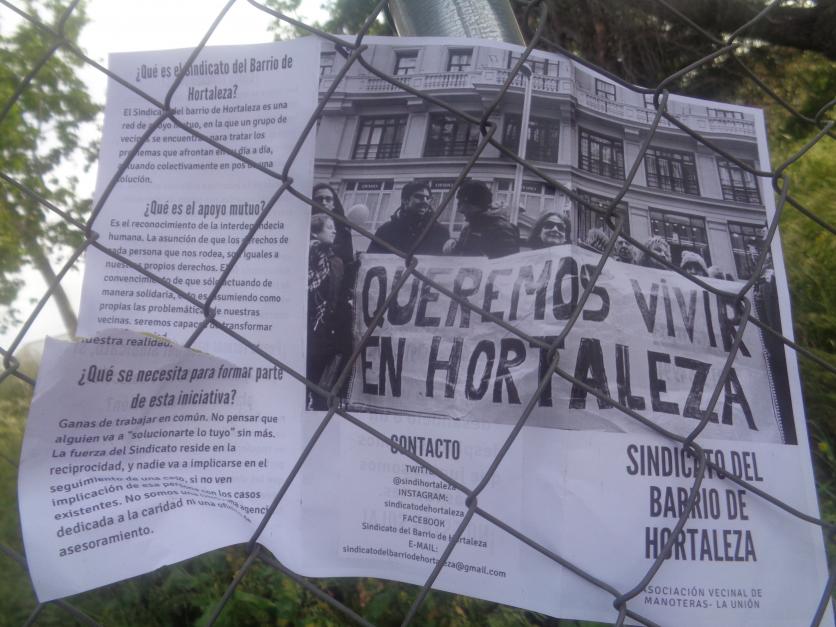 ¿Qué es el Sindicato del Barrio de
Hortaleza?
El Sindicato del barrio de Hortaleza es una
red de apoyo mutuo, en la que un grupo de
vecinas se encuentran para tratar los
problemas que afrontan en su día a día,
actuando colectivamente en pos de una
solución.
¿Qué es el apoyo mutuo?
Es el reconocimiento de la interdependecia
humana. La asunción de que los derechos de
cada persona que nos rodea, son iguales a
nuestros propios derechos. El
convencimiento de que sólo actuando de
manera solidaria, esto es asumiendo como
propias las problemáticas de nuestras
vecinas, seremos capaces de transformar
nuestra realidad.
¿Qué se necesita para formar parte
de esta iniciativa?
Ganas de trabajar en común. No pensar que
alguien va a "solucionarte lo tuyo" sin más.
La fuerza del Sindicato reside en la
reciprocidad, y nadie va a implicarse en el
seguimiento de una caso, si no ven
implicación de esa persona con los casos
existentes. No somos una agencia
dedicada a la caridad ni una oficina de
asesoramiento.
QUEREMOS VIVIR
EN HORTALEZA
CONTACTO
TWITTER
@sindihortaleza
INSTAGRAM:
sindicatodehortaleza
FACEBOOK
Sindicato del Barrio de Hortaleza
E-MAIL:
sindicatodelbarriodehortaleza@gmail.com
SINDICATO DEL
BARRIO DE
HORTALEZA
ASOCIACIÓN VECINAL DE
MANOTERAS- LA UNIÓN